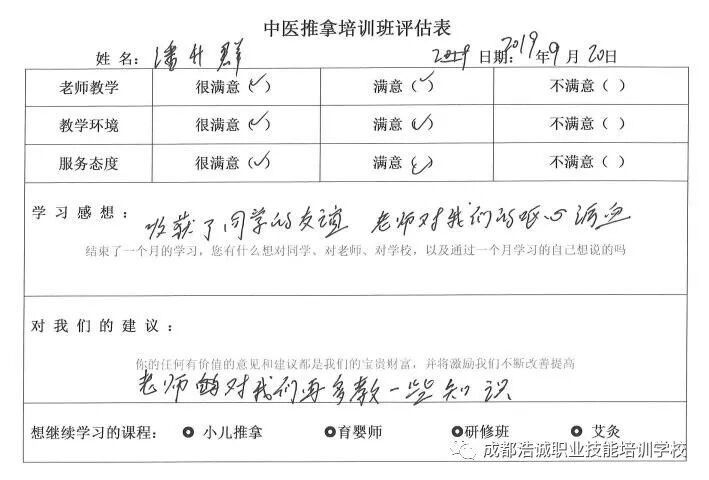 中医推拿培训班评估表
姓名：潘升群 2019 日期：2019年9月20日
老师教学 很满意（✓） 满意（✓） 不满意（ ）
教学环境 很满意（✓） 满意（✓） 不满意（ ）
服务态度 很满意（✓） 满意（✓） 不满意（ ）
学习感想：
收获了同学的友谊 老师对我们的呕心沥血
结束了一个月的学习，您有什么想对同学、对老师、对学校，以及通过一个月学习的自己想说的吗
对我们的建议：
你的任何有价值的意见和建议都是我们的宝贵财富，并将激励我们不断改善提高
老师能对我们再多教一些知识
想继续学习的课程： 小儿推拿 育婴师 研修班 艾灸
成都浩诚职业技能培训学校